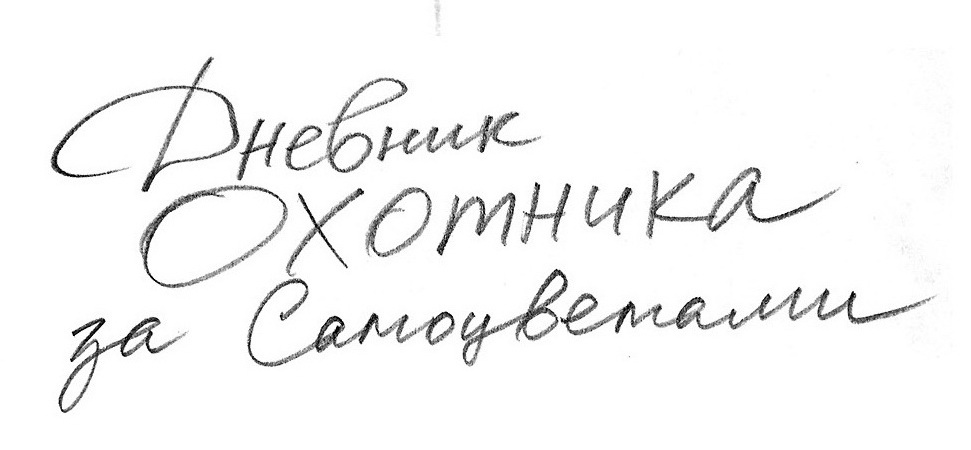 Дневник
Охотника
за Самоцветами